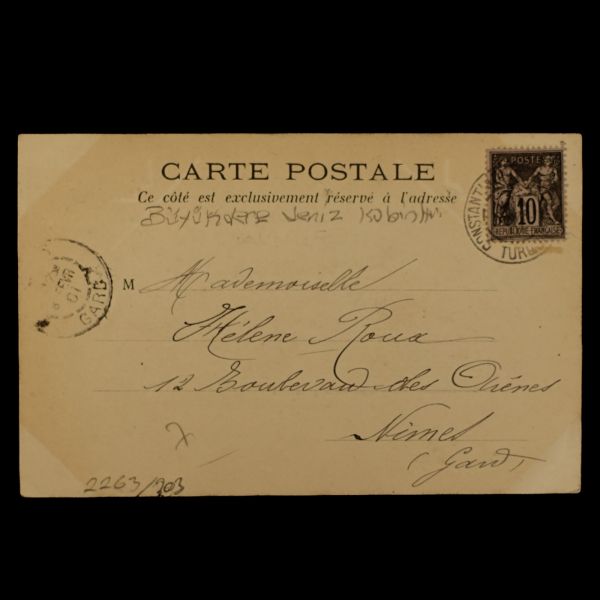 CARTE POSTALE
Ce côté est exclusivement réservé à l'adresse
Büyükdere Deniz
POSTE
10
REPUBLIQUE FRANCAISE
CONSTANTI
TURQ
GARD
M Mademoiselle
Hélène Roux
12 Boulevard des Arénes
Nimes
(Gard)
2263/203